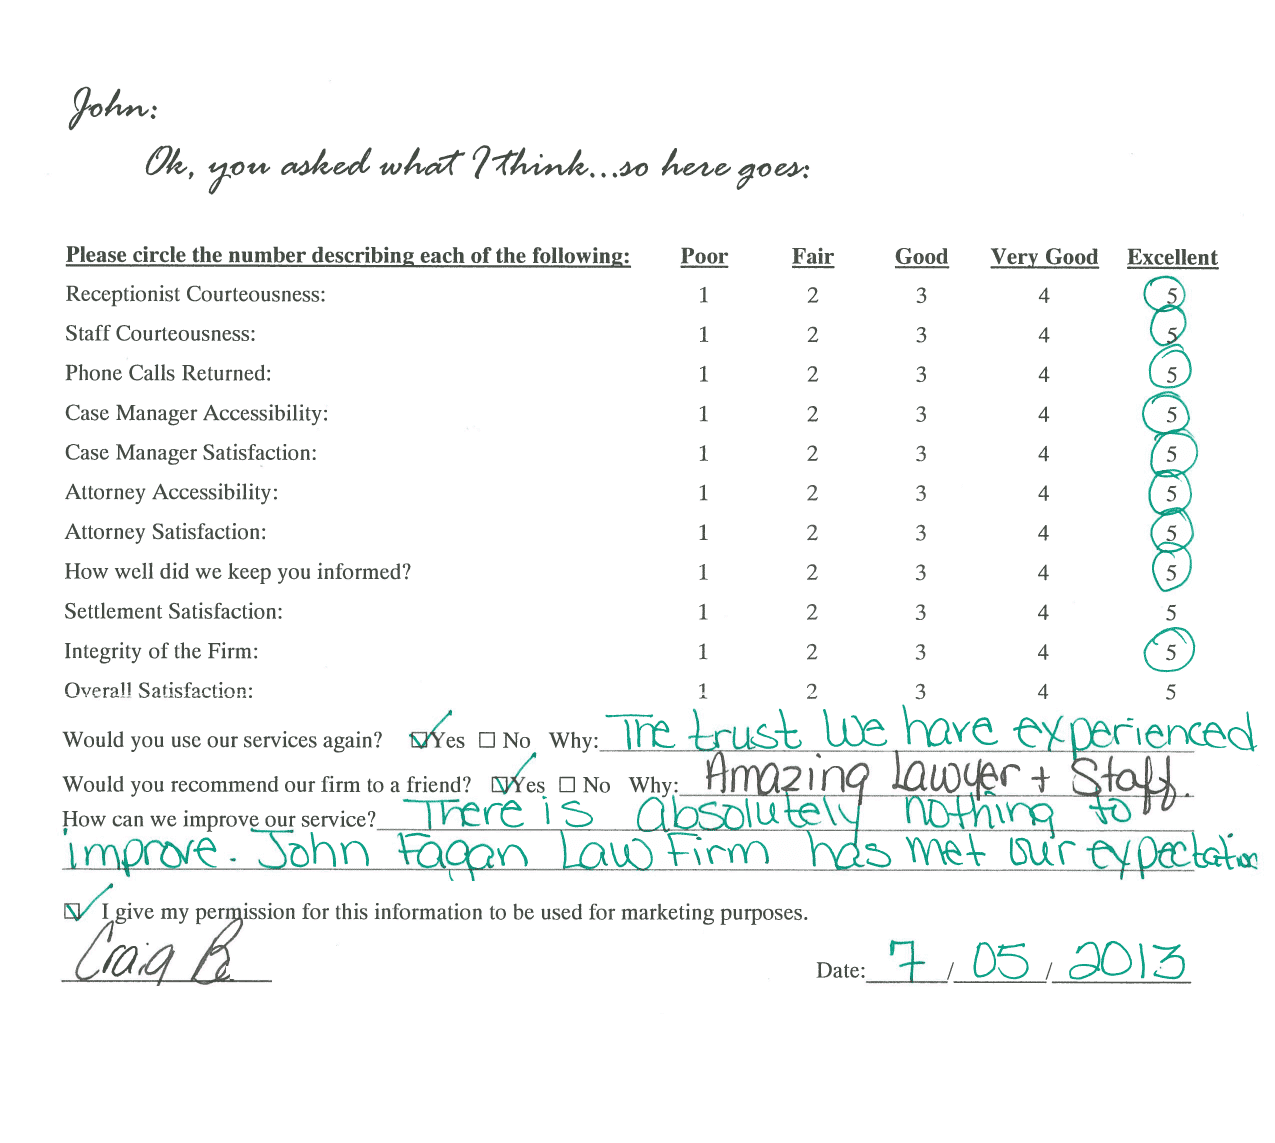 John:
Ok, you asked what I think...so here goes:
Please circle the number describing each of the following: Poor Fair Good Very Good Excellent
Receptionist Courteousness: 1 2 3 4 5
Staff Courteousness: 1 2 3 4 5
Phone Calls Returned: 1 2 3 4 5
Case Manager Accessibility: 1 2 3 4 5
Case Manager Satisfaction: 1 2 3 4 5
Attorney Accessibility: 1 2 3 4 5
Attorney Satisfaction: 1 2 3 4 5
How well did we keep you informed? 1 2 3 4 5
Settlement Satisfaction: 1 2 3 4 5
Integrity of the Firm: 1 2 3 4 5
Overall Satisfaction: 1 2 3 4 5
Would you use our services again? Yes No Why: The trust we have experienced
Would you recommend our firm to a friend? Yes No Why: Amazing Lawyer + Staff.
How can we improve our service? There is absolutely nothing to
improve. John Fagan Law Firm has met our expectation
I give my permission for this information to be used for marketing purposes.
Craig B. Date: 7 / 05 / 2013